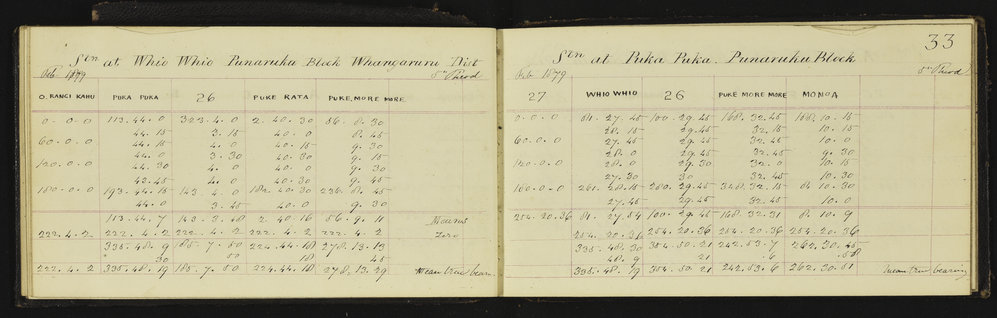 Stn at Whio Whio Punaruku Block Whangaruru Dist
Feb 1879 5th Period
O. RANGI KAHU PUKA PUKA 26 PUKE RATA PUKE MORE MORE
0.0.0 113.44.0 323.4.0 2.40.30 56.8.30
44.15 3.15 40.0 8.45
60.0.0 44.15 4.0 40.30 9.30
44.0 3.30 40.30 9.15
120.0.0 44.30 4.0 40.0 9.30
43.45 4.0 40.30 9.45
180.0.0 193.44.15 143.4.0 182.40.30 236.8.45
44.0 3.45 40.0 9.30
113.44.7 143.3.48 2.40.16 56.9.11 Means
222.4.2 222.4.2 222.4.2 222.4.2 222.4.2 Zero
335.48.9 185.7.50 224.44.18 278.13.13
30 50 18 45
222.4.2 335.48.19 185.7.50 224.44.18 278.13.29 Mean true bearing
33
Stn at Puka Puka Punaruku Block
Feb 1879 5th Period
27 WHIO WHIO 26 PUKE MORE MORE MONOA
0.0.0 81.27.45 100.29.45 168.32.45 188.10.15
28.15 29.45 32.15 10.15
60.0.0 27.45 29.45 32.45 10.0
28.0 29.45 32.45 9.30
120.0.0 28.0 29.30 32.0 10.15
27.30 30 32.45 10.30
180.0.0 261.28.15 280.29.45 348.32.15 8.10.30
27.45 29.45 32.45 10.0
254.20.36 81.27.54 100.29.45 168.32.31 8.10.9
254.20.36 254.20.36 254.20.36 254.20.36
335.48.30 354.50.21 242.53.7 262.30.45
48.9 21 .6 .58
335.48.19 354.50.21 242.53.6 262.30.51 Mean true bearing